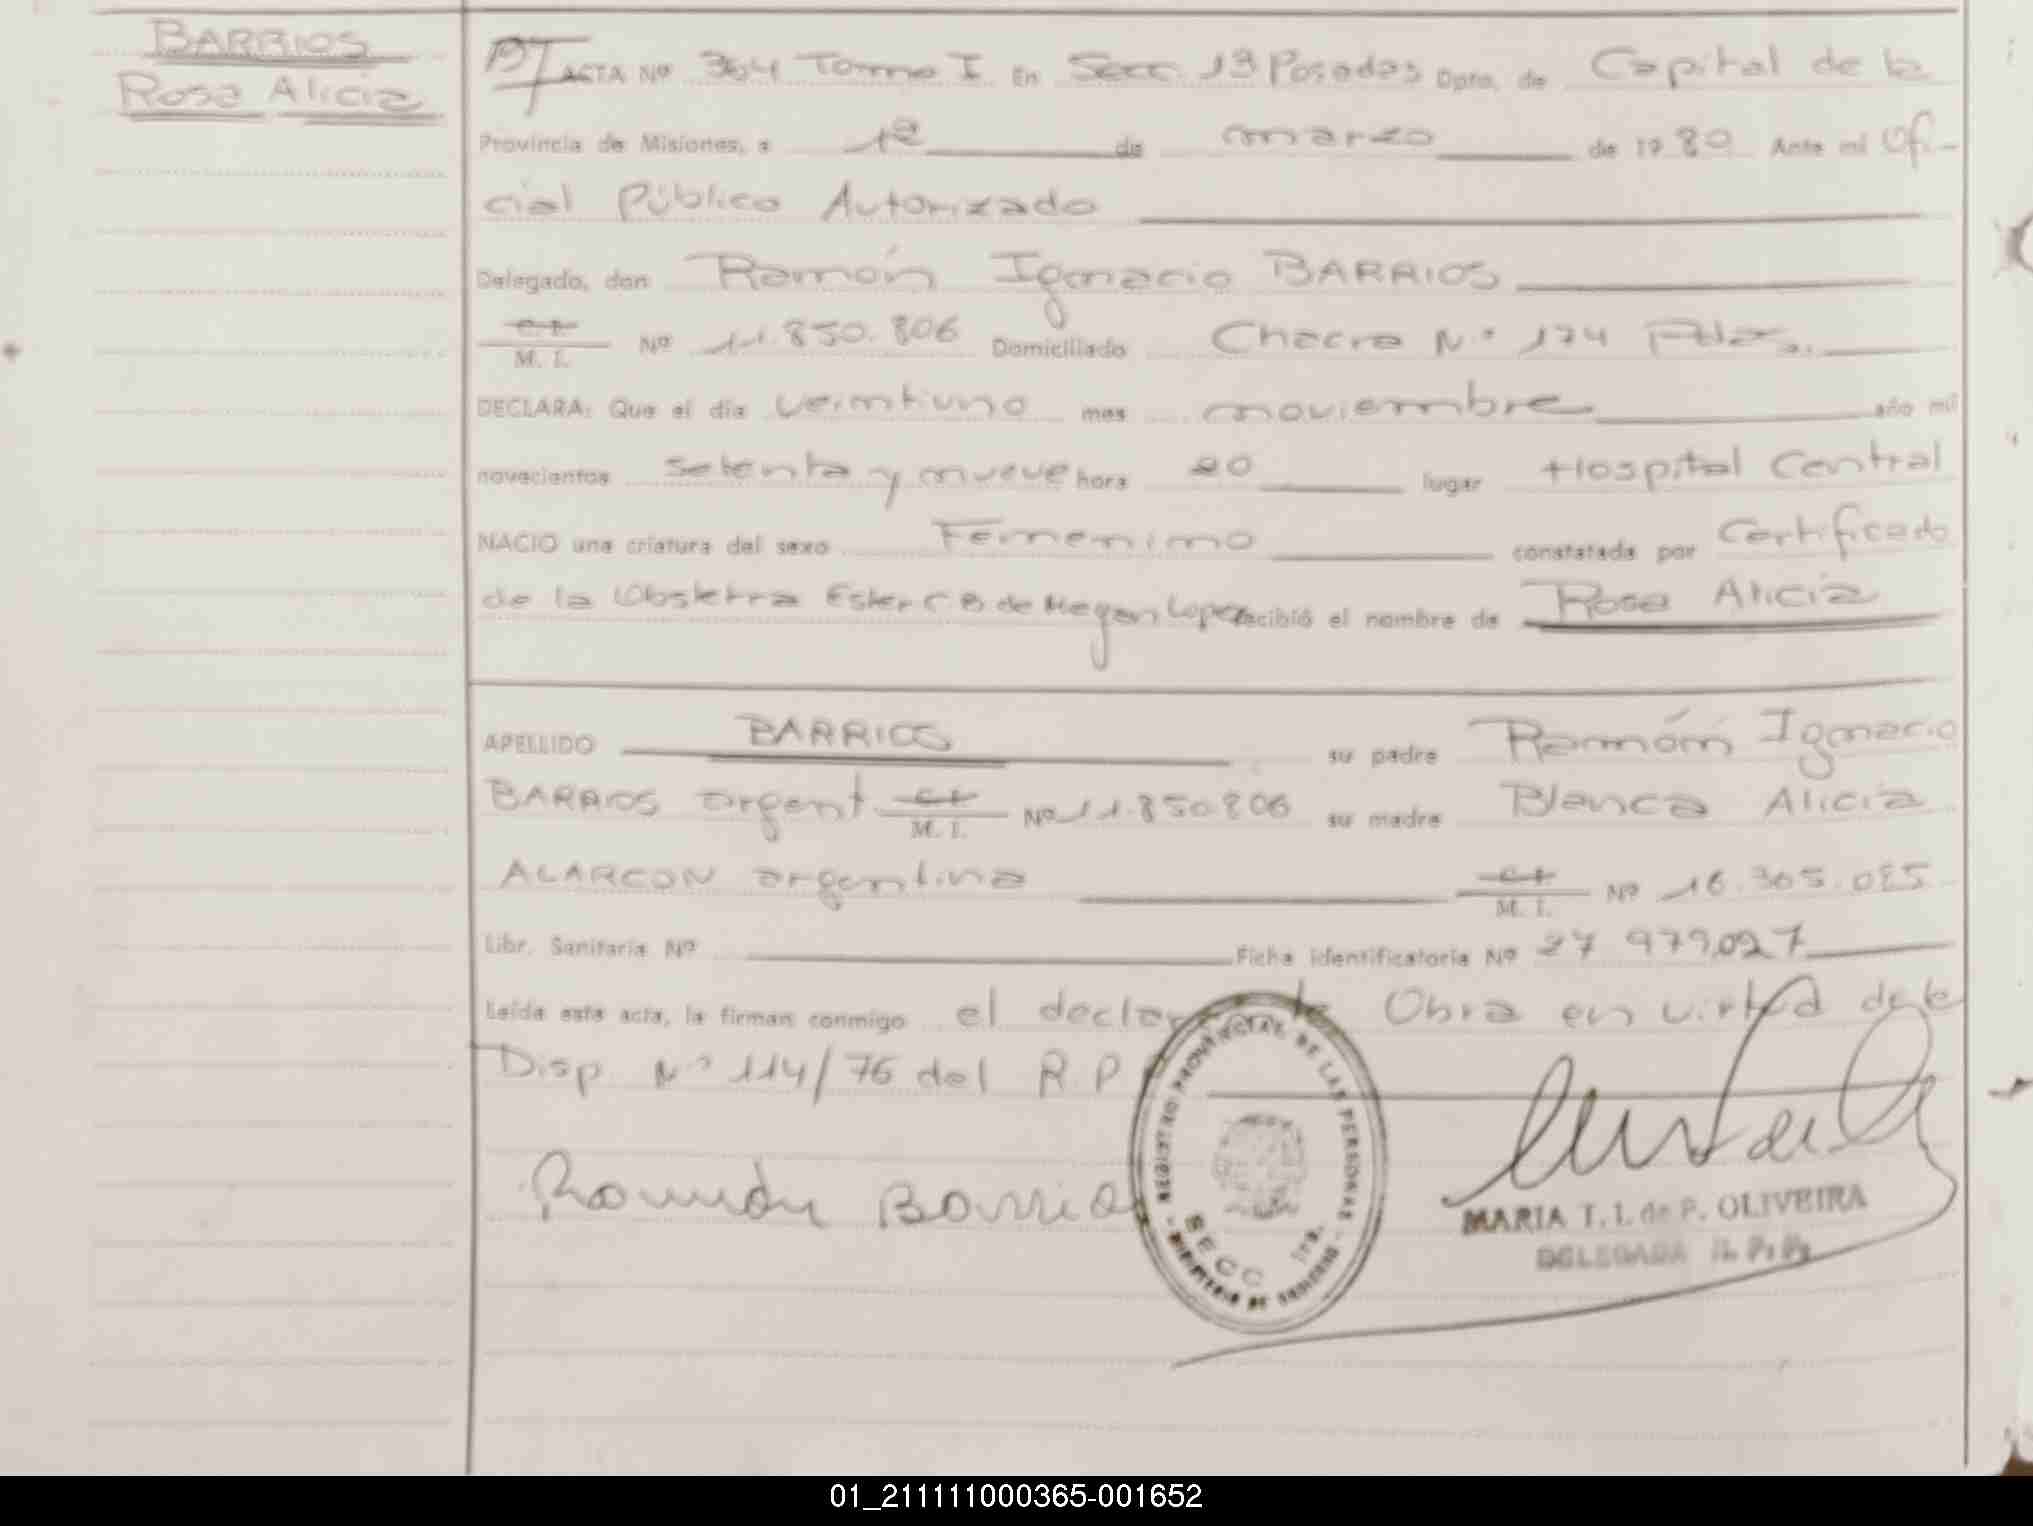 BARRIOS
Rosa Alicia
ACTA Nº 364 Tomo I En Secc. 13 Posadas Dpto. de Capital de la
Provincia de Misiones, a 1º de marzo de 1980 Ante mi Ofi-
cial Público Autorizado
Delegado, don Ramón Ignacio BARRIOS
M. I. Nº 11.850.806 Domiciliado Chacra N° 174 Pdas.
DECLARA: Que el día veintiuno mes noviembre año mil
novecientos setenta y nueve hora 20 lugar Hospital Central
NACIO una criatura del sexo Femenino constatada por Certificado
de la Obstetra Ester C B de Megan Lopez recibió el nombre de Rosa Alicia
APELLIDO BARRIOS su padre Ramón Ignacio
BARRIOS argent M. I. Nº 11.850.806 su madre Blanca Alicia
ALARCON argentina M. I. Nº 16.365.085
Libr. Sanitaria Nº Ficha identificatoria Nº 27 979.027
Leída esta acta, la firman conmigo el declarante Obra en virtud de la
Disp. N° 114/76 del R.P.
Ramón Barrios
REGISTRO PROVINCIAL DE LAS PERSONAS
SECC 1ra.
MINISTERIO DE GOBIERNO
MARIA T. I. de P. OLIVEIRA
DELEGADA R. P. Ps
01_211111000365-001652